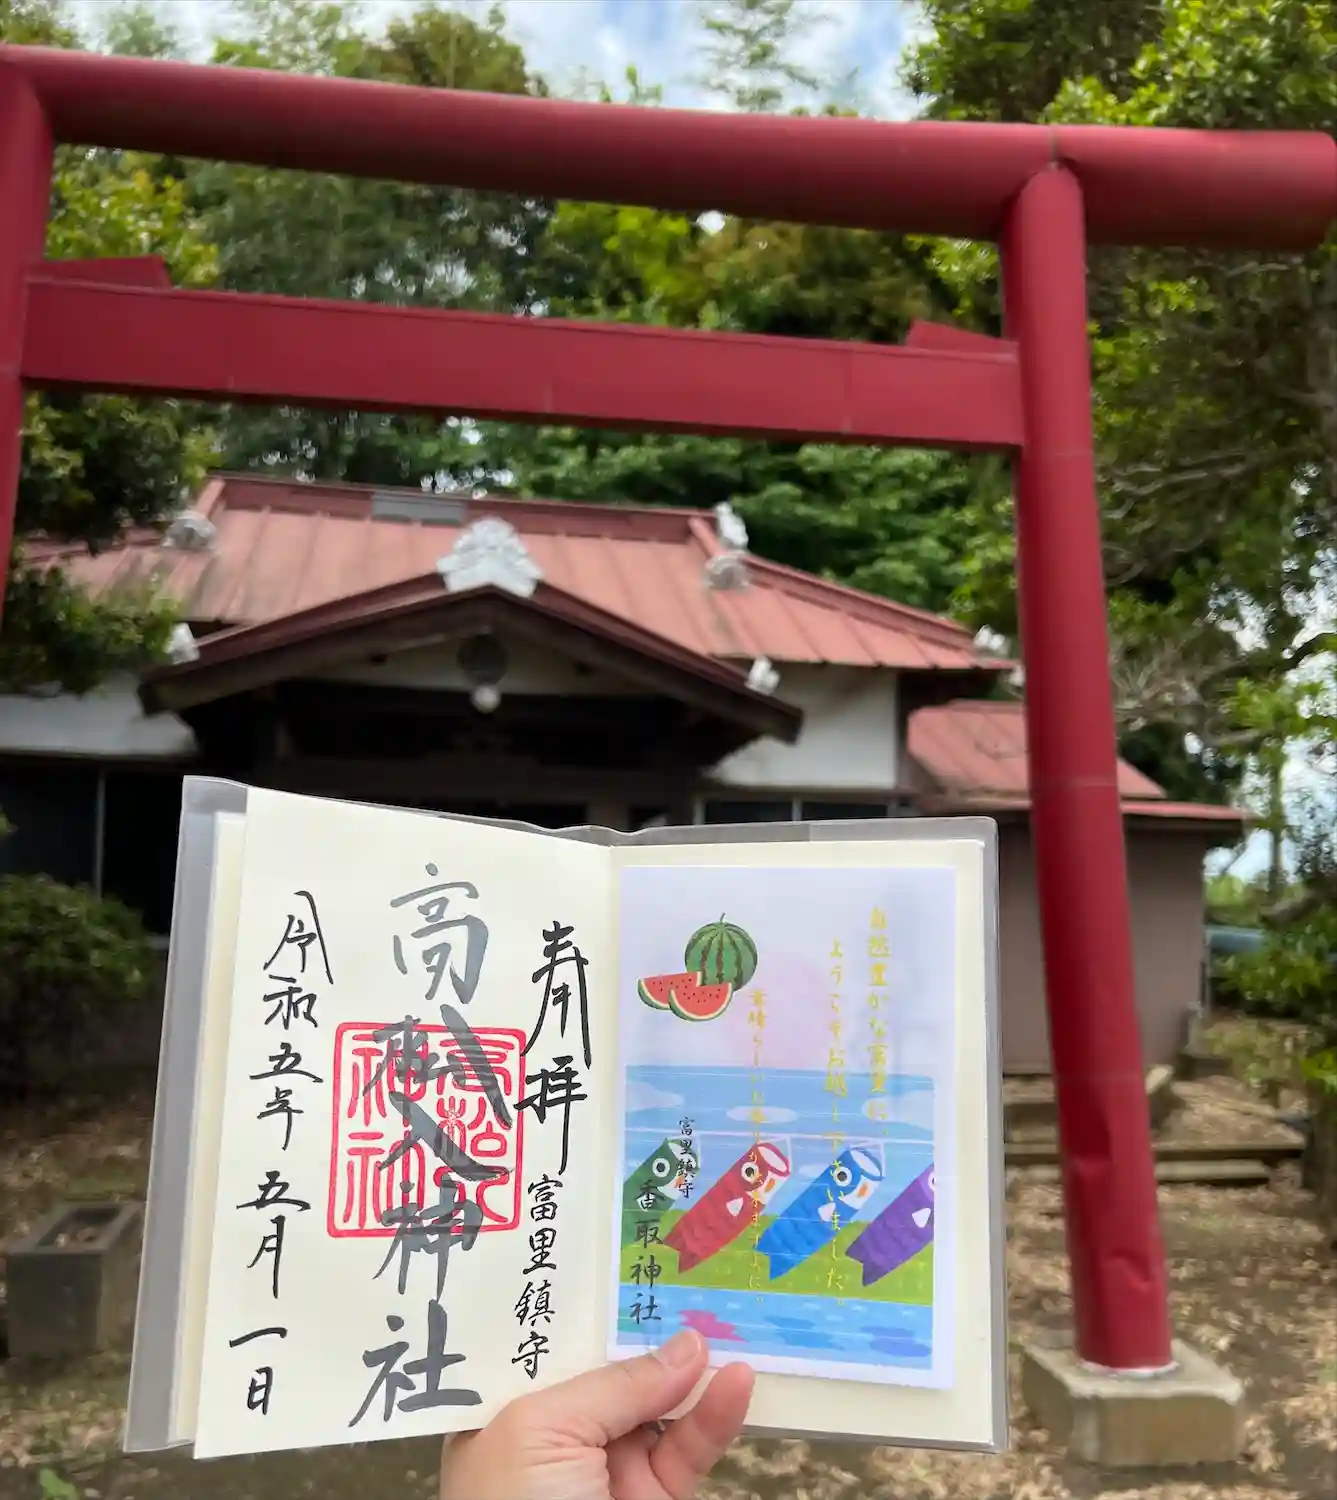 奉拝 富里鎮守
高松入神社
高松入
神社
令和五年五月一日
自然豊かな富里に、
ようこそお越し下さいました。
素晴らしいお参りが出来ますように。
富里鎮守
香取神社